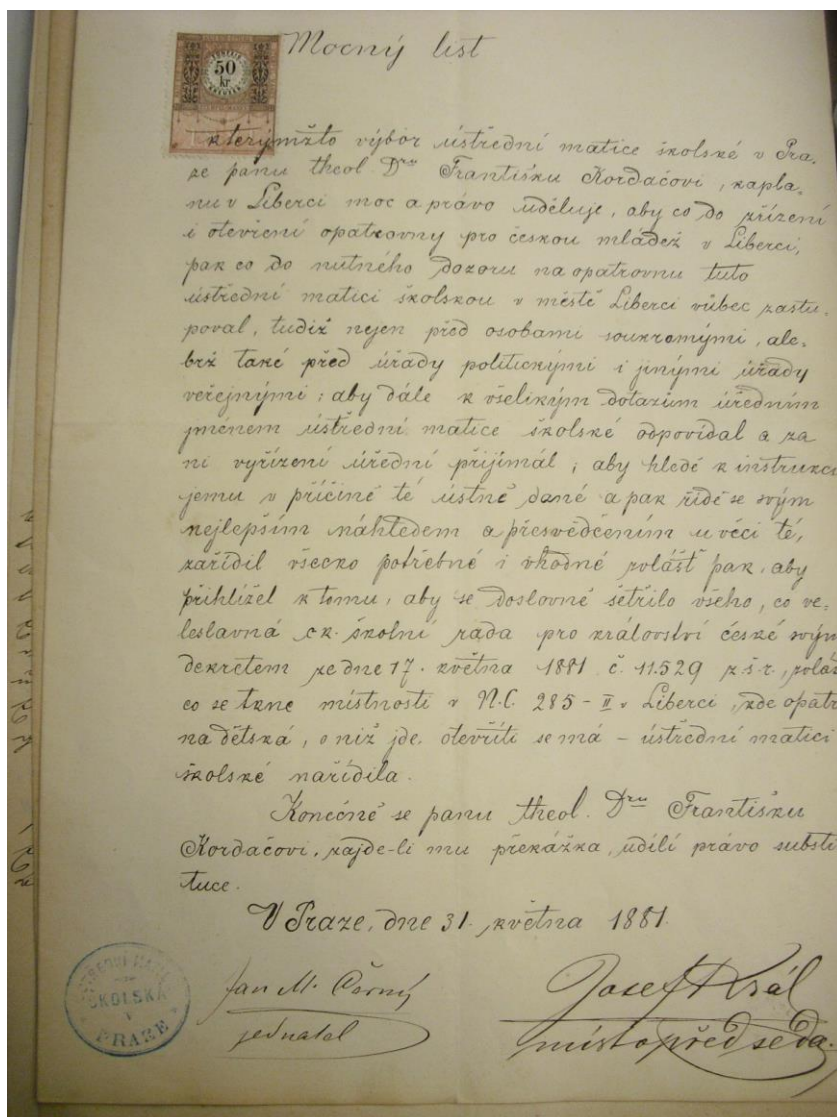 Mocný list
50
kr
kterýmžto výbor ústřední matice školské v Pra-
ze panu theol. Dru Františku Kordačovi, kapla-
nu v Liberci moc a právo uděluje, aby co do zřízení
i otevření opatrovny pro českou mládež v Liberci,
pak co do nutného dozoru na opatrovnu tuto
ústřední matici školskou v městě Liberci vůbec zastu-
poval, tudíž nejen před osobami soukromými, ale-
brž také před úřady politickými i jinými úřady
veřejnými; aby dále k všelikým dotazům úředním
jménem ústřední matice školské odpovídal a za
ni vyřízení úřední přijímal; aby hledě k instrukci
jemu v příčině té ústně dané a pak řídě se svým
nejlepším náhledem a přesvědčením u věci té,
zařídil všecko potřebné i vhodné zvlášť pak, aby
přihlížel k tomu, aby se doslovně šetřilo všeho, co ve-
leslavná c.k. školní rada pro království české svým
dekretem ze dne 17. května 1881 č. 11.529 z.š.r., zvlášť
co se tkne místnosti v N.C. 285-II v Liberci, kde opatr
na dětská, o niž jde, otevříti se má – ústřední matici
školské nařídila.
Konečně se panu theol. Dru Františku
Kordačovi, zajde-li mu překážka, udílí právo substi
tuce.
V Praze, dne 31. května 1881.
Jan M. Černý
jednatel
Josef Král
místopředseda.
ÚSTŘEDNÍ MATICE
ŠKOLSKÁ
V
PRAZE